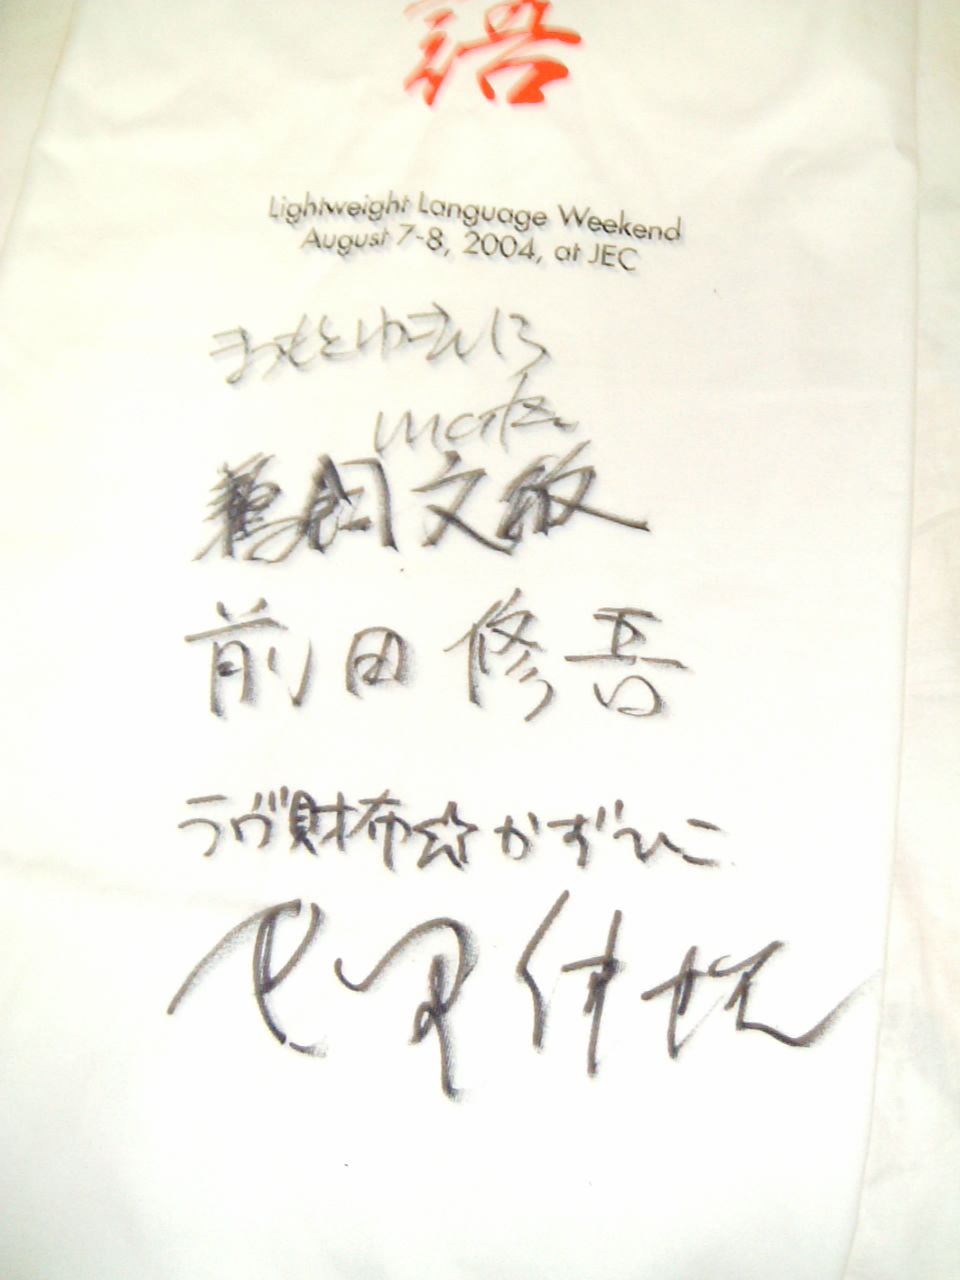 語
Lightweight Language Weekend
August 7-8, 2004, at JEC
まつもとゆきひろ
matz
文敏
前田修吾
ラヴ財布☆かずひこ